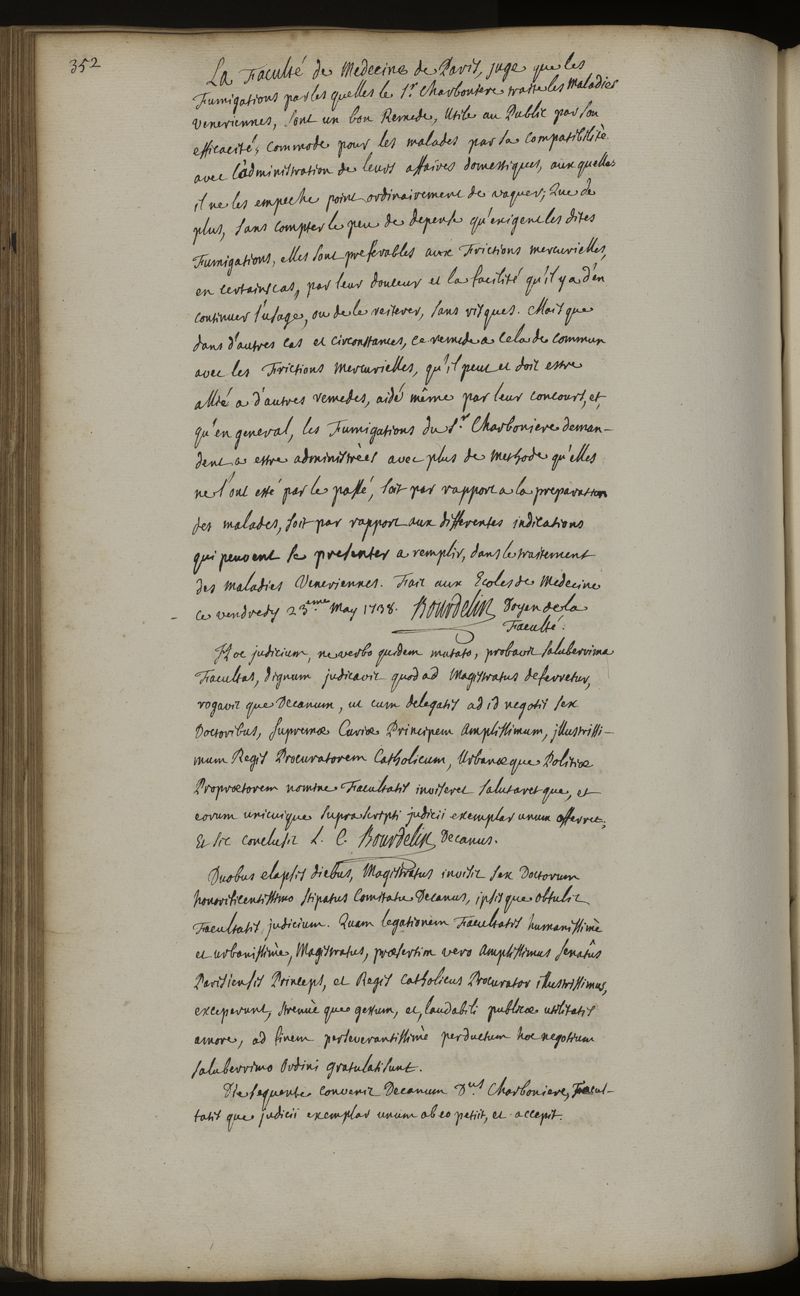 352
La Faculté de Medecine de Paris, juge que les
Fumigations par les quelles le Sr. Charboniere traite les Maladies
Veneriennes, sont un bon Remede, Utile au Public par son
efficacité; commode pour les malades par sa compatibilité
avec l'administration de leurs affaires domestiques, aux quelles
il ne les empeche point ordinairement de vaquer; Que de
plus, sans compter le peu de depense qu'exigent les dites
Fumigations, elles sont preferables aux Frictions mercurielles,
en certains cas, par leur douceur et la facilité qu'il y a d'en
continuer l'usage, ou de le reiterer, sans risques. Mais que
dans d'autres cas et circonstances, ce remede a cela de commun
avec les Frictions Mercurielles, qu'il peut et doit estre
allié a d'autres remedes, aidé même par leur concours, et,
qu'en general, les Fumigations du Sr. Charboniere deman-
dent a estre administrées avec plus de methode qu'elles
ne l'ont esté par le passé, soit par rapport a la preparation
des malades, soit par rapport aux differentes indications
qui peuvent se presenter a remplir, dans le traitement
des maladies Veneriennes. Fait aux Ecoles de Medecine
ce vendredy 23eme. May 1738. Bourdelin Doyen de la
Faculté.
Hoc judicium, ne verbo quidem mutato, probavit saluberrima
Facultas, dignum judicavit quod ad Magistratus deferretur,
rogavit que Decanum, ut cum delegatis ad id negotii sex
Doctoribus, supremæ Curiæ Principem amplissimum, illustrissi-
mum Regis Procuratorem Catholicum, Urbanæque Politiæ
Proprætorem nomine Facultatis inviseret salutaretque, et
eorum unicuique suprascripti judicii exemplar unum offerret;
Et sic conclusit L. C. Bourdelin Decanus.
Duobus elapsis diebus, Magistratus invisit sex Doctorum
honorificentissimo stipatus Comitatu Decanus, ipsisque obtulit
Facultatis judicium. Quam legationem Facultatis humanissimè
et urbanissimè, Magistratus, præsertim vero amplissimus senatûs
Parisiensis Princeps, et Regis Catholicus Procurator illustrissimus,
exceperunt, strenuè que gestum, et, laudabili publicæ utilitatis
amore, ad finem perseverantissimè perductum hoc negotium
saluberrimo Ordini gratulati sunt.
Die sequente convenit Decanum Dnus. Charboniere, Facul-
tatis que judicii exemplar unum ab eo petiit, et accepit.